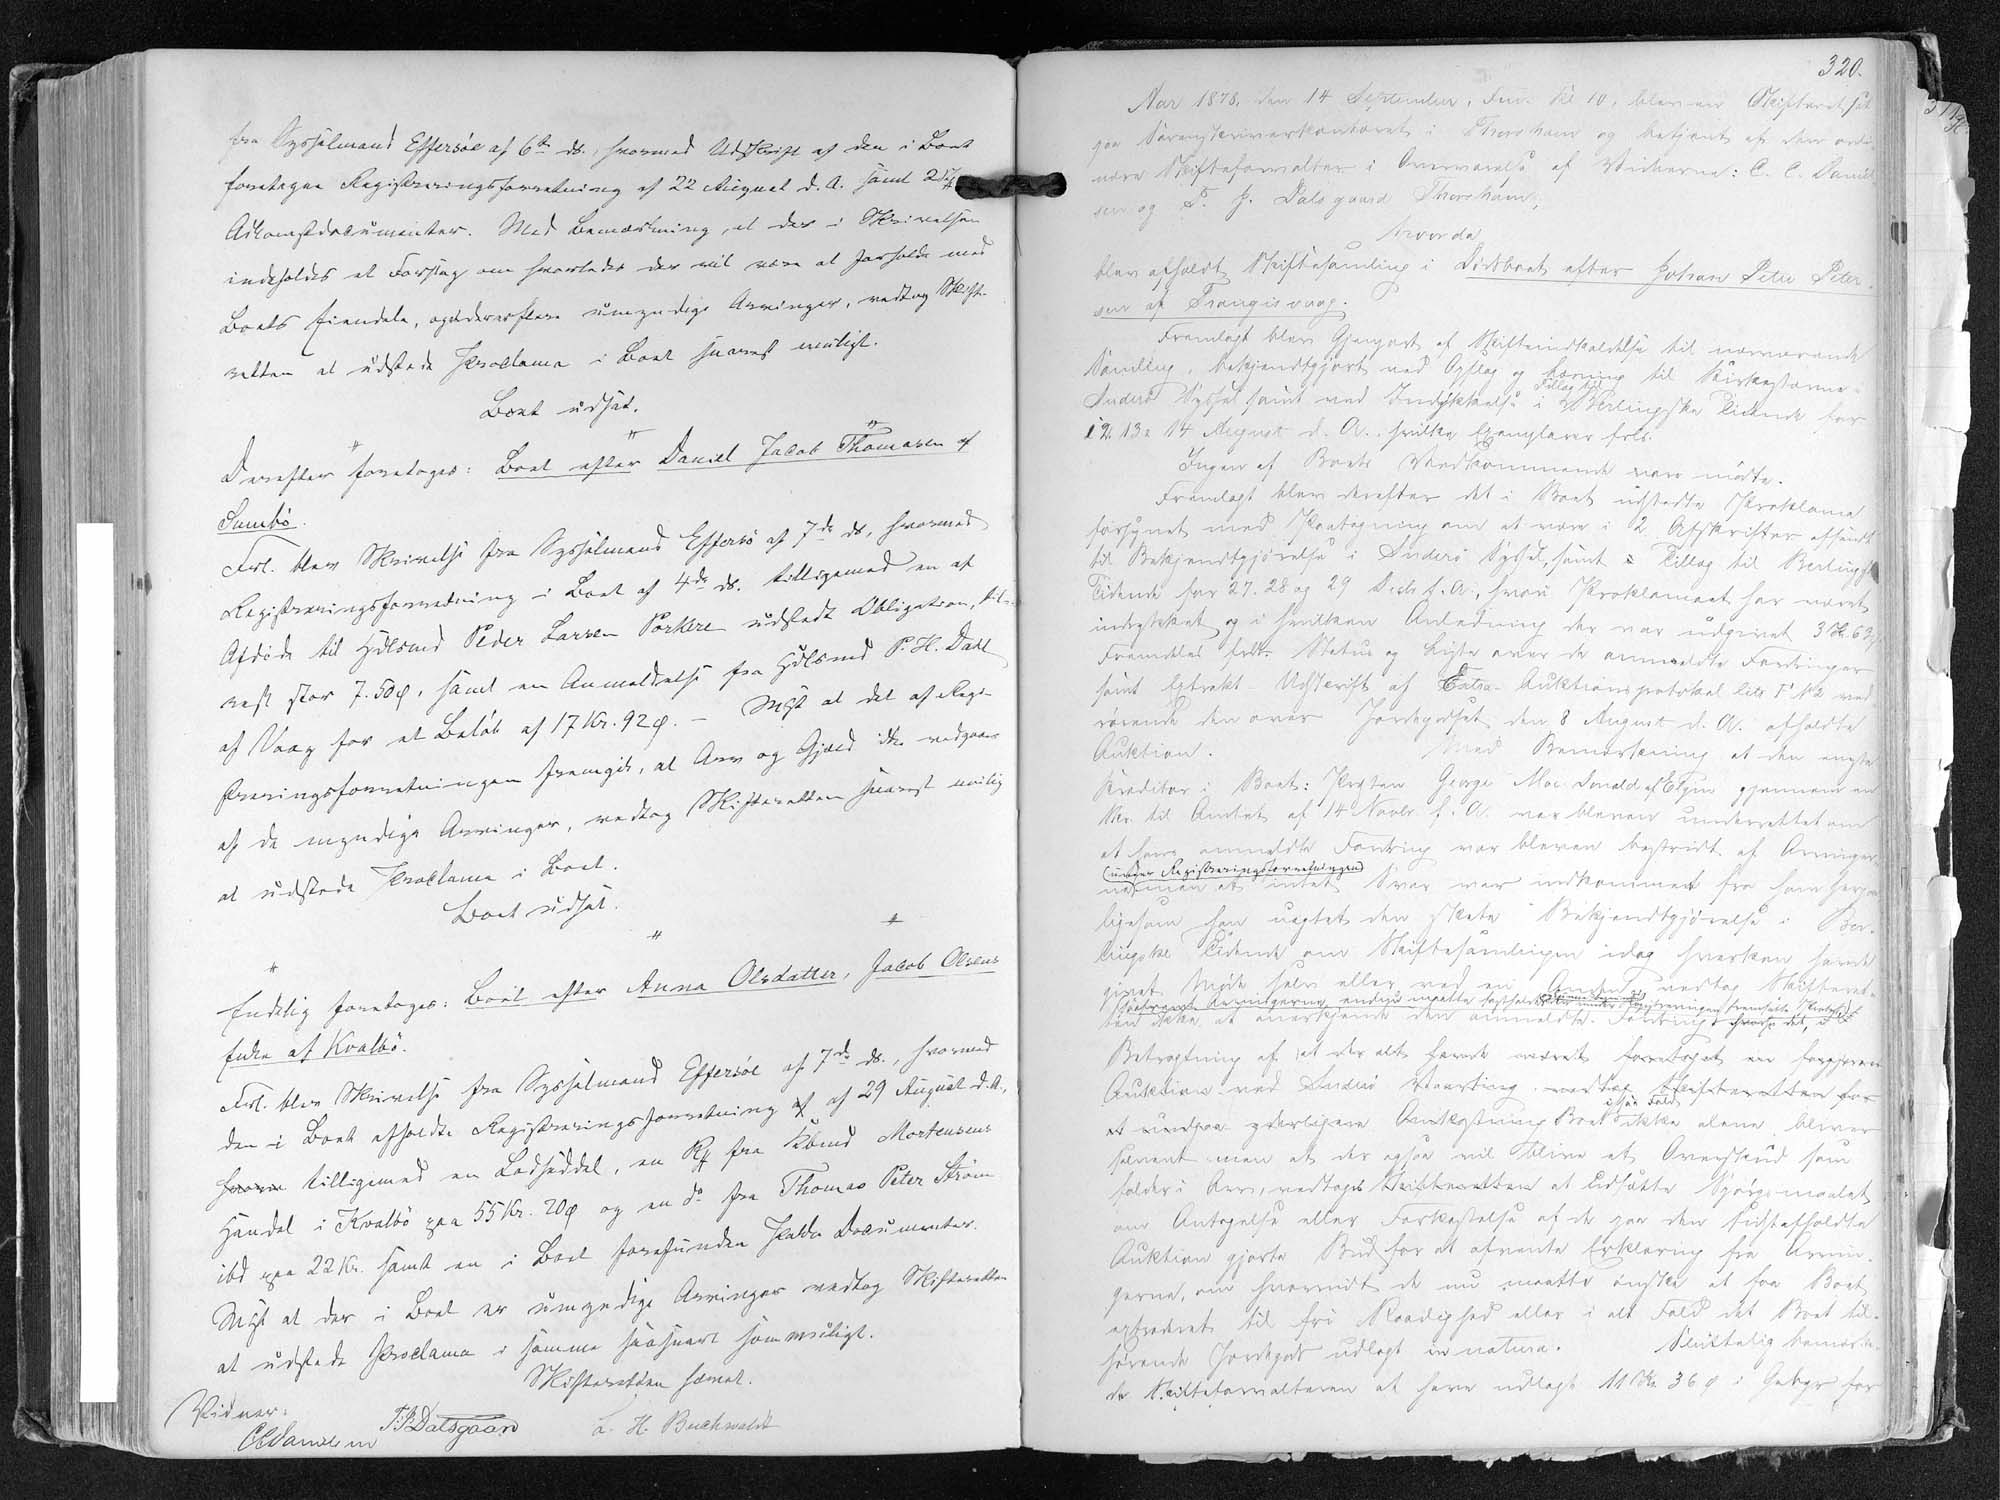 fra Sysselmand Effersöe af 6te ds., hvormed Udskrift af den i Boet
foretagne Registreringsforretning af 22 August d. A. samt 2
Adkomstdocumenter. Med Bemærkning, at der i Skrivelsen
indeholdes et Forslag om hvorledes der vil være at forholde med
Boets Eiendele, umyndige Arvinger, vedtog Skifte-
retten at udstede Proclama i Boet snarest muligt.
Boet udsat.
Derefter foretoges: Boet efter Daniel Jacob Thomasen af
Sumbö.
Frl. blev Skrivelse fra Sysselmand Effersö af 7de ds., hvormed
Registreringsforretning i Boet af 4de ds. tilligemed en af
Afdöde til Hdlsmd Peder Larsen Porkere udstedt Obligation,
rest stor 7.50 ø, samt en Anmeldelse fra Hdlsmd P. H. Dahl
af Vaag for et Belöb af 17 Kr. 92 ø. — at det af Regi-
streringsforretningen fremgik, at Arv og Gjæld ikke vedgaaes
af de myndige Arvinger, vedtog Skifteretten snarest mulig
at udstede Proclama i Boet.
Boet udsat.
Endelig foretoges: Boet efter Anna Olsdatter, Jacob Olsens
Enke af Kvalbö.
Frl. blev Skrivelse fra Sysselmand Effersöe af 7de ds., hvormed
den i Boet afholdte Registreringsforretning af af 29 August d. A.,
hvorm tilligemed en Ladseddel, en fra Kbmd Mortensens
Handel i Kvalbö paa 55 Kr. 20 ø og en do fra Thomas Peter Ström
ibd paa 22 Kr. samt en i Boet forefunden Documenter.
at der i Boet er umyndige Arvinger vedtog Skifteretten
at udstede Proclama i samme saasnart som muligt.
Skifteretten hævet.
Vidner:
C C Danielsen T. J. Dalsgaard L. H. Buchwaldt
320.
Aar 1878, den 14 September, Fm. Kl 10, blev en Skifteret sat
paa Sorenskriverkontoret i Thorshavn og betjent af den ordi-
nære Skifteforvalter i Overværelse af Vidnerne: C. C. Daniel
sen og T. J. Dalsgaard Thorshavn,
hvorda
blev afholdt Skiftesamling i Dödsboet efter Johan Peter Peter-
sen af Trangisvaag.
Fremlagt blev Gjenpart af Skifteindkaldelse til nærværende
Samling, bekjendtgjort ved Opslag og Læsning til Kirkestævne i
Suderö Syssel samt ved Indrykkelse i Tillæg til Berlingske Tidende for
12, 13 & 14 August d. A., hvilke Exemplarer frls.
Ingen af Boets Vedkommende vare mödte.
Fremlagt blev derefter det i Boet udstedte Proklama
forsynet med Paategning om at være i 2 Afskrifter afsendt
til Bekjendtgjörelse i Suderö Syssel, samt Tillæg til Berlingske
Tidende for 27. 28 og 29 f. A., hvori Proklamaet har været
indrykket og i hvilken Anledning der var udgivet 3 Kr 63 ø.
Fremdeles frls. Status og Liste over de anmeldte Fordringer
samt Extrakt-Udskrift af Extra-Auktionsprotokol Litr F No 2 ved-
rörende den over Jordegodset den 8 August d. A. afholdte
Auktion. Med Bemærkning at den eneste
Kreditor i Boet: Præsten George Mac Donald af Elgin gjennem en
Skr. til Amtet af 14 Novbr. f. A. var bleven underrettet om
at hans anmeldte Fordring var bleven bestridt af Arvinger-
(under Registreringsforretningen)
ne men at intet Svar var indkommet fra ham herpaa
ligesom han uagtet den skete Bekjendtgjörelse i Ber-
lingske Tidende om Skiftesamlingen idag hverken havde
givet Möde selv eller ved en Anden, vedtog Skifteret-
ten ikke at anerkjende den anmeldte Fordring
Betragtning af at der alt havde været foretaget en
Auktion ved Suderö Vaarting vedtog Skifteretten for
at undgaa yderligere Omkostning Boet i saa Fald ikke alene bliver
solvent men at der ogsaa vil blive et Overskud som
falder i Arv, vedtoges Skifteretten at udsætte Spörgsmaalet
om Antagelse eller Forkastelse af de paa den sidstafholdte
Auktion gjorte Bud for at afvente Erklæring fra Arvin-
gerne, om hvorvidt de nu maatte önske at faa Boet
extraderet til fri Raadighed eller i alt Fald det Boet til-
hörende Jordegods udlagt in natura. Sluttelig bemærke-
de Skifteforvalteren at have udlagt 11 Kr. 36 ø i Gebyr for